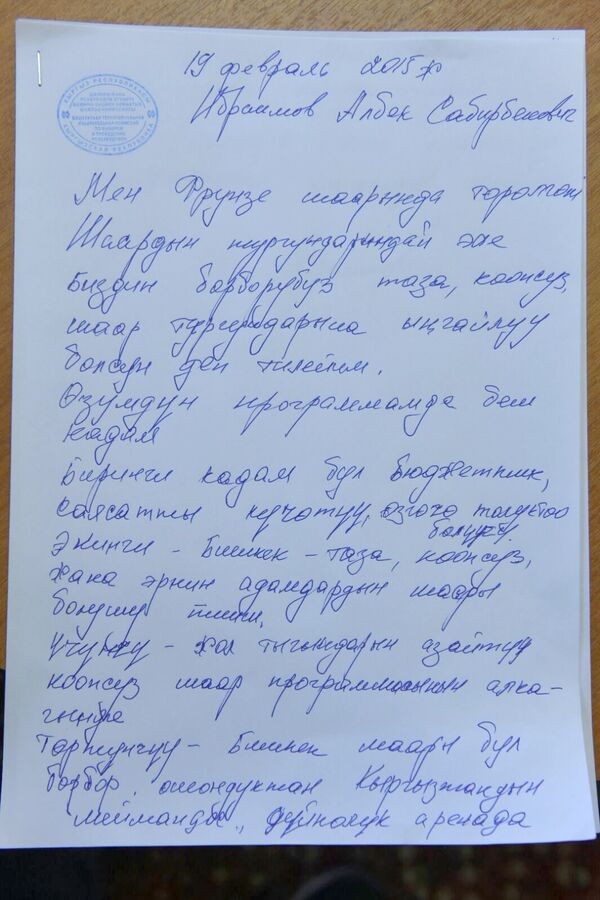 19 февраль 2015 ж
Ибраимов Албек Сабирбекович
КЫРГЫЗ РЕСПУБЛИКАСЫ
КЫРГЫЗСКАЯ РЕСПУБЛИКА
Мен Фрунзе шаарында
Шаардын тургундарындай эле
Биздин борборубуз таза, коопсуз,
шаар тургундарына ыңгайлуу
болсун деп тилейм.
Өзүмдүн программамда беш
кадам
Биринчи кадам бул Бюджеттик,
саясатты күчөтүү, өзгөчө
болуусу.
Экинчи - Бишкек - таза, коопсуз,
Жана эркин адамдардын шаары
болушу тийиш.
Үчүнчү - жол тыгындарын азайтуу
коопсуз шаар программасынын алка-
гында
Төртүнчүү - Бишкек шаары бул
борбор, ошондуктан Кыргызстандын
дүйнөлүк аренада